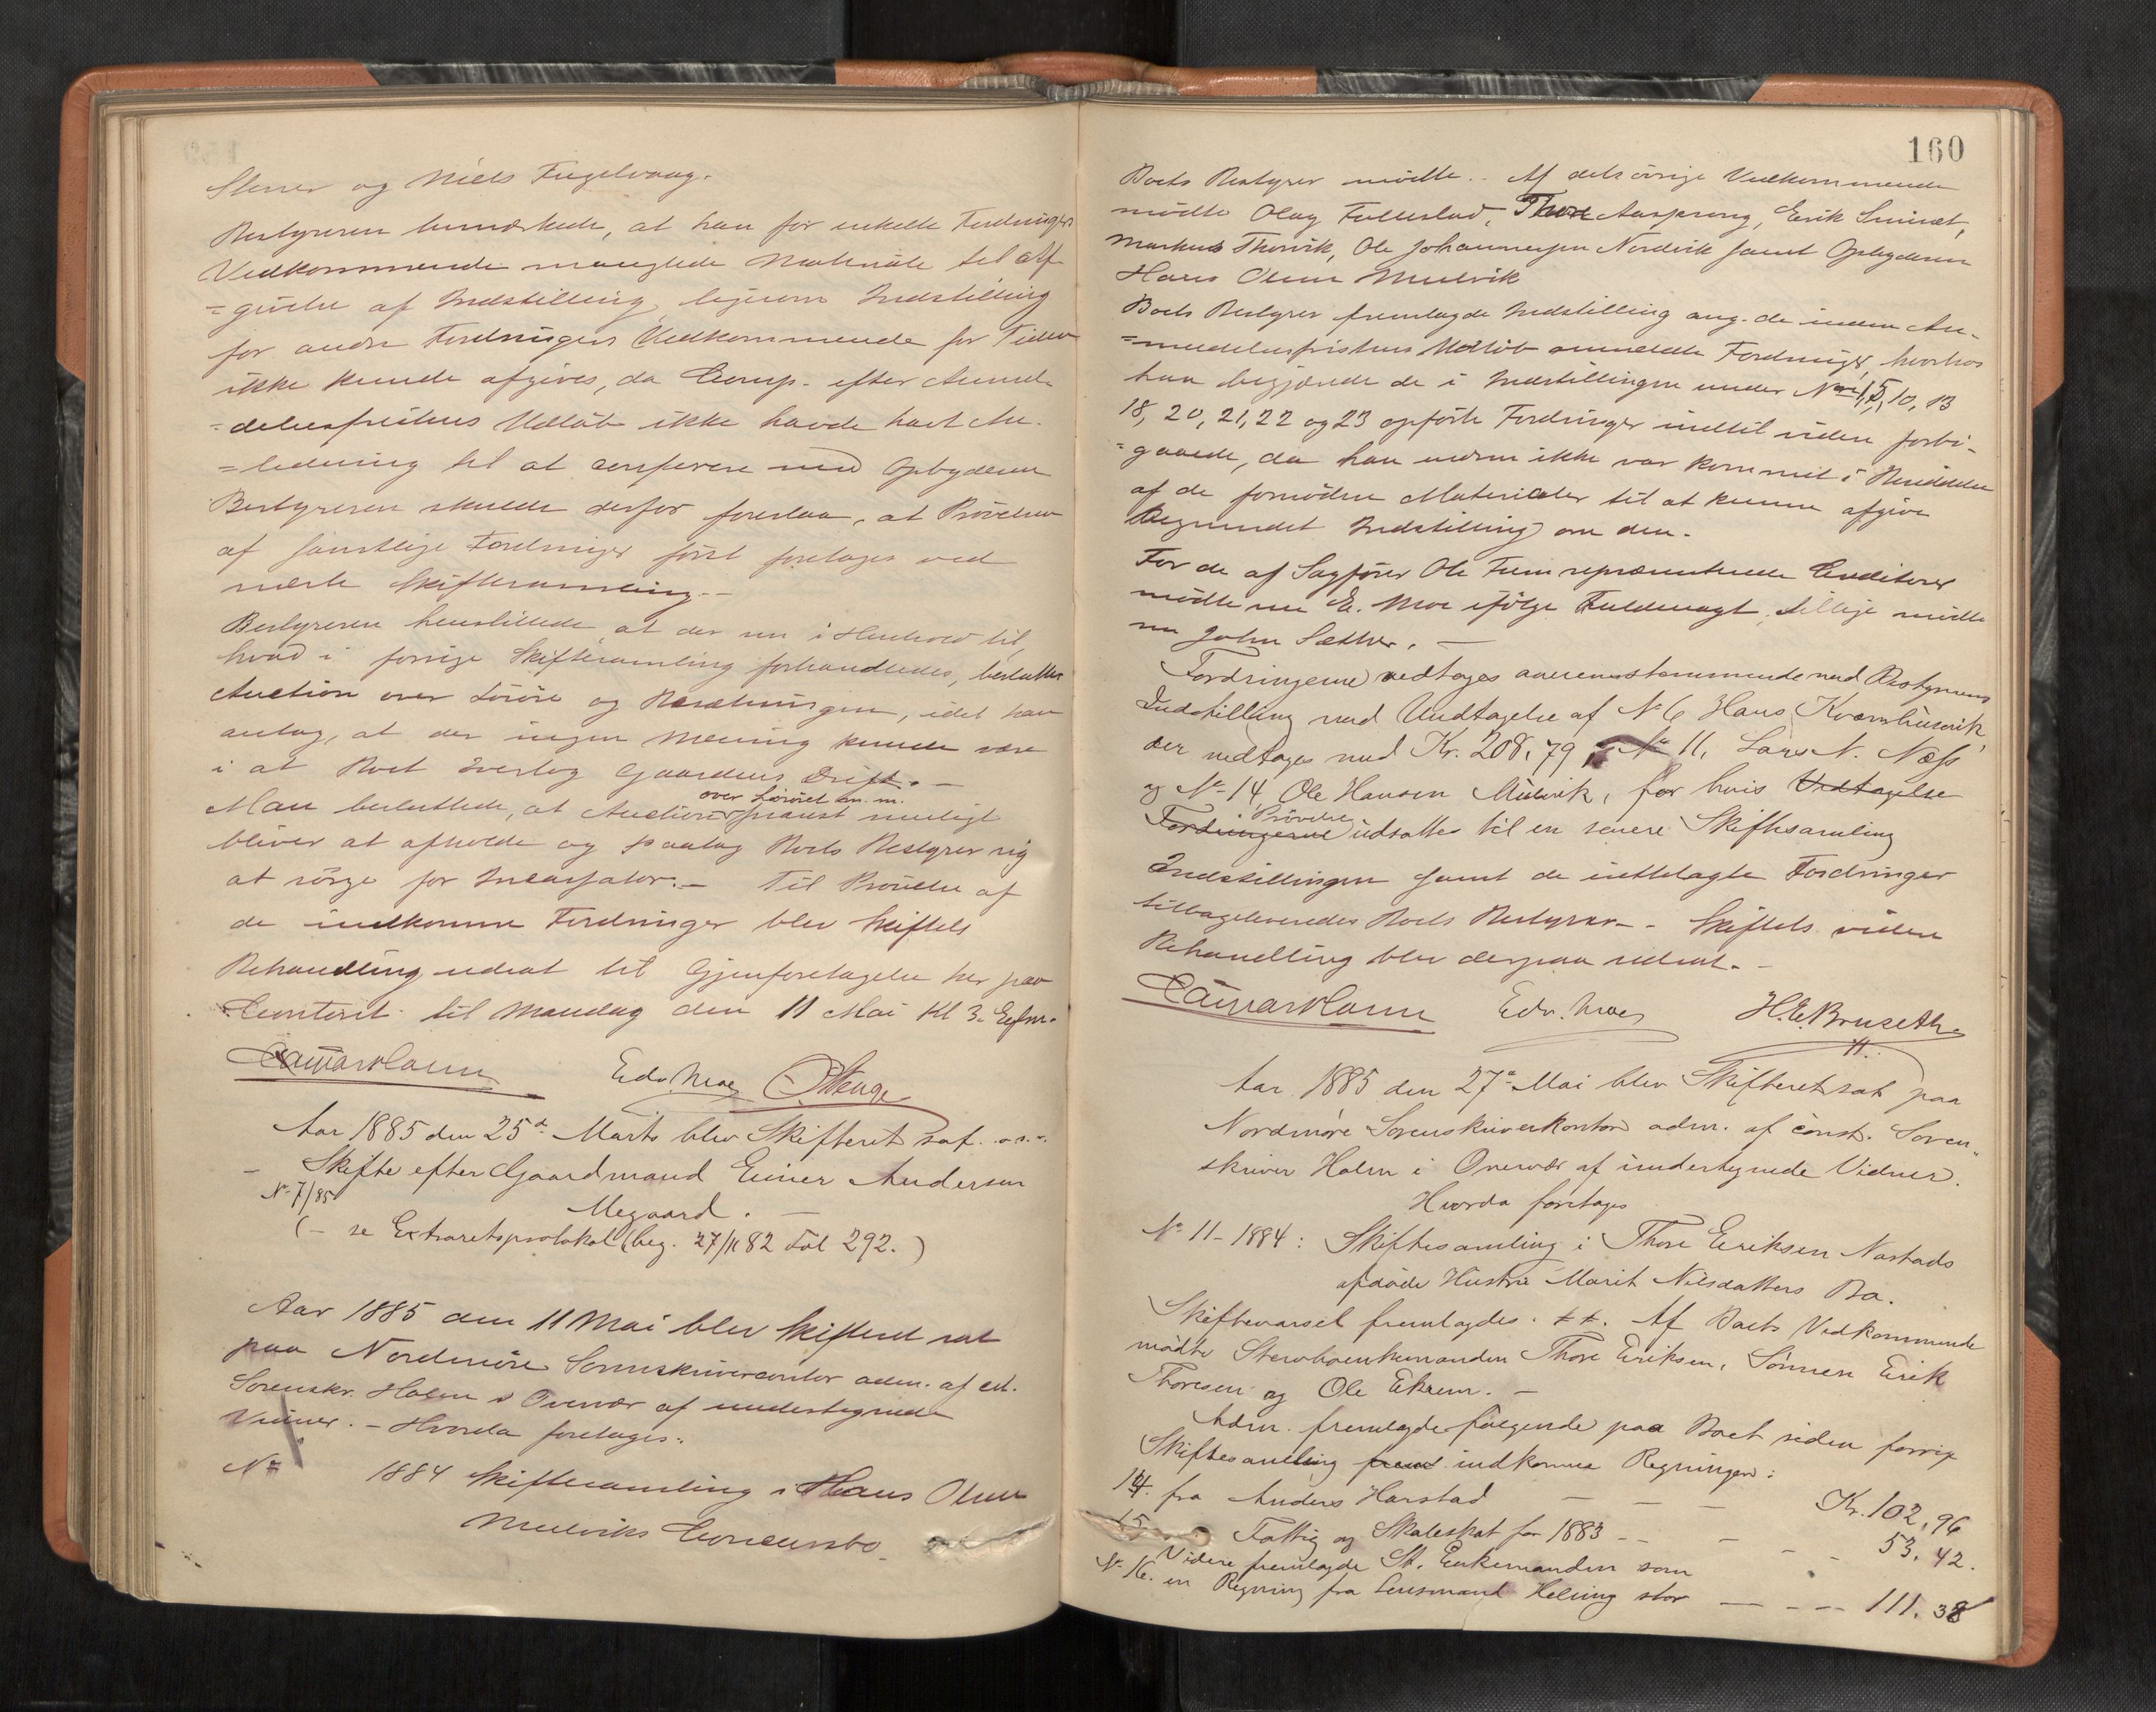 Stener og Niels Fugelvaag.
Bestyreren bemærkede, at han for enkelte Fordringers
Vedkommende manglede Materiale til Af-
=givelse af Indstilling, ligesom Indstilling
for andre Fordringers Vedkommende for Tiden
ikke kunde afgives, da Comp. efter Anmel-
=delsesfristens Udløb ikke havde havt An-
=ledning til at conferere med Opbyderen
Bestyreren skulde derfor foreslaa, at Prøvelsen
af samtlige Fordringer først foretages ved
næste Skiftesamling.-
Bestyreren henstillede, at der nu i Henhold til,
hvad i forrige Skiftesamling forhandledes, besluttes
Auction over Løsøre og Besætningen, idet han
antog, at der ingen Mening kunde være
i at Boet overtog Gaardens Drift. -
over Løsøret m. m.
Man besluttede, at Auctioner snarest muligt
bliver at afholde og paatog Boets Bestyrer sig
at sørge for Incassator. - Til Prøvelse af
de indkomne Fordringer blev Skiftets
Behandling udsat til Gjenforetagelse her paa
Contoret til Mandag den 11 Mai Kl 3. Efm.
Edv. Moe
Aar 1885 den 25de Marts blev Skifteret sat. o.s.v.
- Skifte efter Gaardmand Einer Andersen
No 7/85
Megaard. -
(- se Extraretsprotokol (beg. 27/11 82 Fol 292.)
Aar 1885 den 11 Mai blev Skifteret sat
paa Nordmøre Sorenskrivercontor adm. af cst.
Sorenskr. Holm i Overvær af undertegnede
Vidner. - Hvorda foretages:
No 1884 Skiftesamling i Hans Olsen
Mulviks Concursbo.
160
Boets Bestyrer mødte. - Af de øvrige Vedkommende
mødte Olag Fullestad, Thore Aasprong, Erik Smisæt,
Markus Thorvik, Ole Johannessen Nordvik samt Opbyderen
Hans Olsen Mulvik
Boets Bestyrer fremlagde Indstilling ang. de inden An-
=meldelsesfristens Udløb anmeldte Fordringer, hvorhos
han begjærede de i Indstillingen under No 1, 5, 10, 13
18, 20, 21, 22 og 23 opførte Fordringer indtil videre forbi-
=gaaede, da han endnu ikke var kommet i Besiddelse
af de fornødne Materialer til at kunne afgive
begrundet Indstilling om dem.
For de af Sagfører Ole Tum repræsenterede Creditorer
mødte nu E. Moe ifølge Fuldmagt, tillige mødte
nu John Sæther. -
Fordringerne vedtoges overensstemmende med Bestyrerens
Indstilling med Undtagelse af No 6 Hans Kvernhusvik,
der vedtoges med Kr. 208,79, No 11, Lars N. Næss
og No 14, Ole Hansen Mulvik, for hvis Vedtagelse
Prøvelse
Fordringerne udsattes til en senere Skiftesamling
Indstillingen samt de indtelagte Fordringer
tilbageleveredes Boets Bestyrer. - Skiftets videre
Behandling blev derpaa udsat. -
Edv. Moe H. E. Bruseth
Aar 1885 den 27de Mai blev Skifteret sat paa
Nordmøre Sorenskriverkontor adm. af const. Soren-
skriver Holm i Overvær af undertegnede Vidner.
Hvorda foretoges
No 11 - 1884: Skiftesamling i Thore Eriksen Nastads
afdøde Hustru Marit Nilsdatters Bo.
Skiftevarsel fremlagdes. Af Boets Vedkommende
mødte Stervboenkemanden Thore Eriksen, Sønnen Erik
Thoresen og Ole Ekrem. -
Adm. fremlagde følgende paa Boet siden forrige
Skiftesamling fremt indkomne Regninger:
14. fra Anders Harstad - - - Kr. 102,96
15 Fattig og Skoleskat for 1883 - - - - 53,42.
Videre fremlagde St. Enkemanden som
No 16. en Regning fra Lensmand Helsing stor - - - 111.38